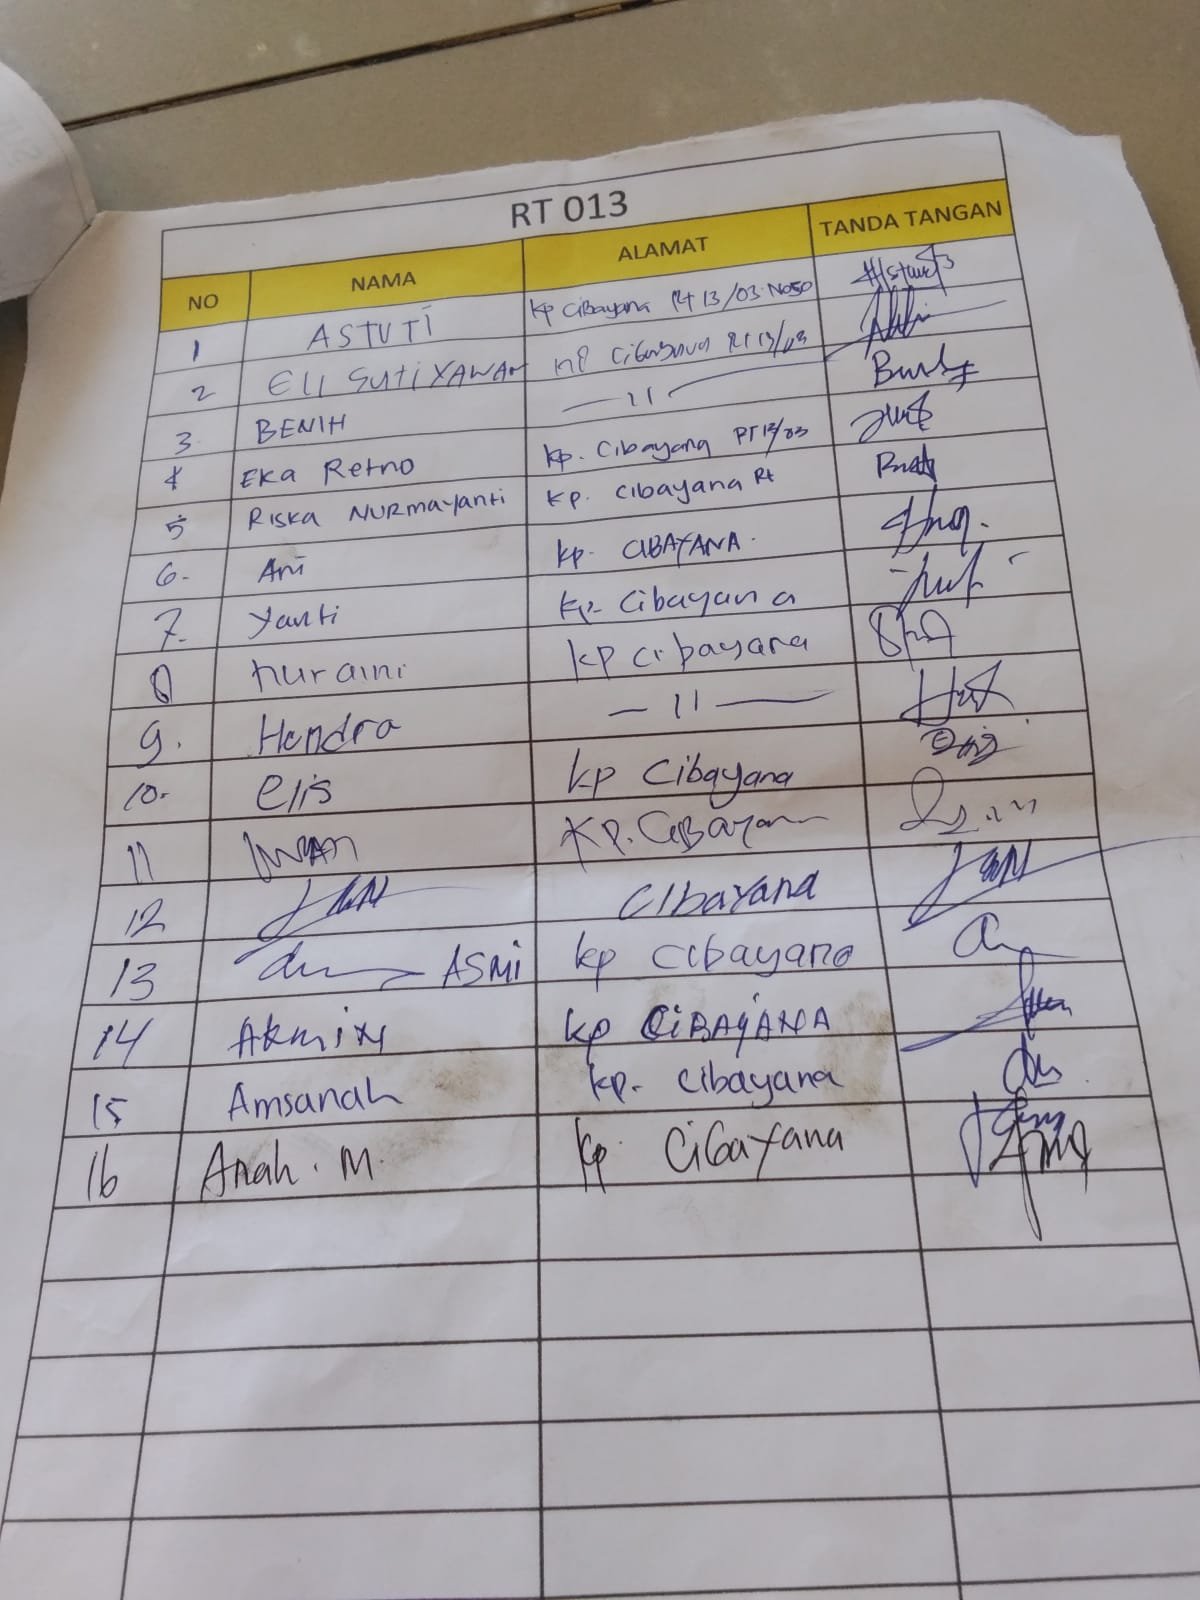 RT 013
NO NAMA ALAMAT TANDA TANGAN
1 ASTUTI kp Cibayana Rt 13/03 No50
2 ELI SUTIYAWAN kp Cibayana RT 13/03
3. BENIH — 11 —
4 EKA Retno kp. Cibayana RT 13/03
5 RISKA NURMAYANTI kp. Cibayana Rt
6. Ani kp. CIBAYANA.
7. Yanti kp. Cibayana
8 nuraini kp cibayana
9. Hendra — 11 —
10. elis kp Cibayana
11 IWAN KP. CIBAYANA
12 CIBAYANA
13 ASMI kp Cibayana
14 kp CIBAYANA
15 Amsanah kp. Cibayana
16 Anah. M. kp. Cibayana